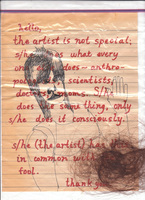 hello,
the artist is not special;
s/he does what every
one does – anthro-
pologists, scientists,
doctors, moms. S/he
does the same thing, only
s/he does it consciously.
s/he (the artist) has this
in common with the
fool.
thank you